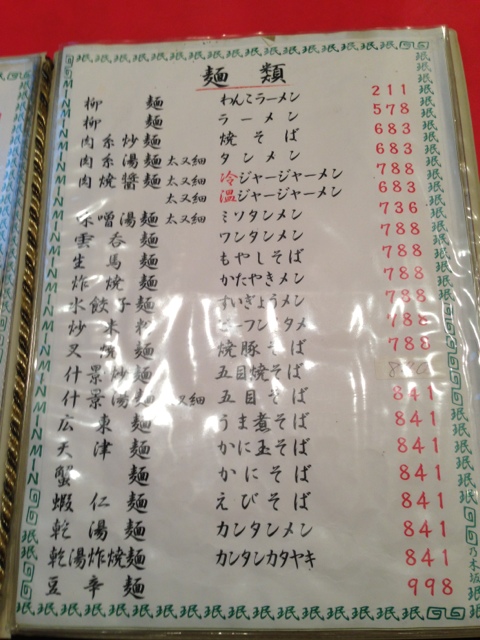 麺類
柳麺 わんこラーメン 211
柳麺 ラーメン 578
肉糸炒麺 焼そば 683
肉糸湯麺 太又細 タンメン 683
肉焼醬麺 太又細 冷ジャージャーメン 788
太又細 温ジャージャーメン 683
味噌湯麺 太又細 ミソタンメン 736
雲呑麺 ワンタンメン 788
生馬麺 もやしそば 788
炸焼麺 かたやきメン 788
水餃子麺 すいぎょうメン 788
炒米粉 ーフン 788
叉焼麺 焼豚そば 788
什景炒麺 五目焼そば
什景湯麺 又細 五目そば 841
広東麺 うま煮そば 841
天津麺 かに玉そば 841
蟹麺 かにそば 841
蝦仁麺 えびそば 841
乾湯麺 カンタンメン 841
乾湯炸焼麺 カンタンカタヤキ 841
豆辛麺 998
乃木坂